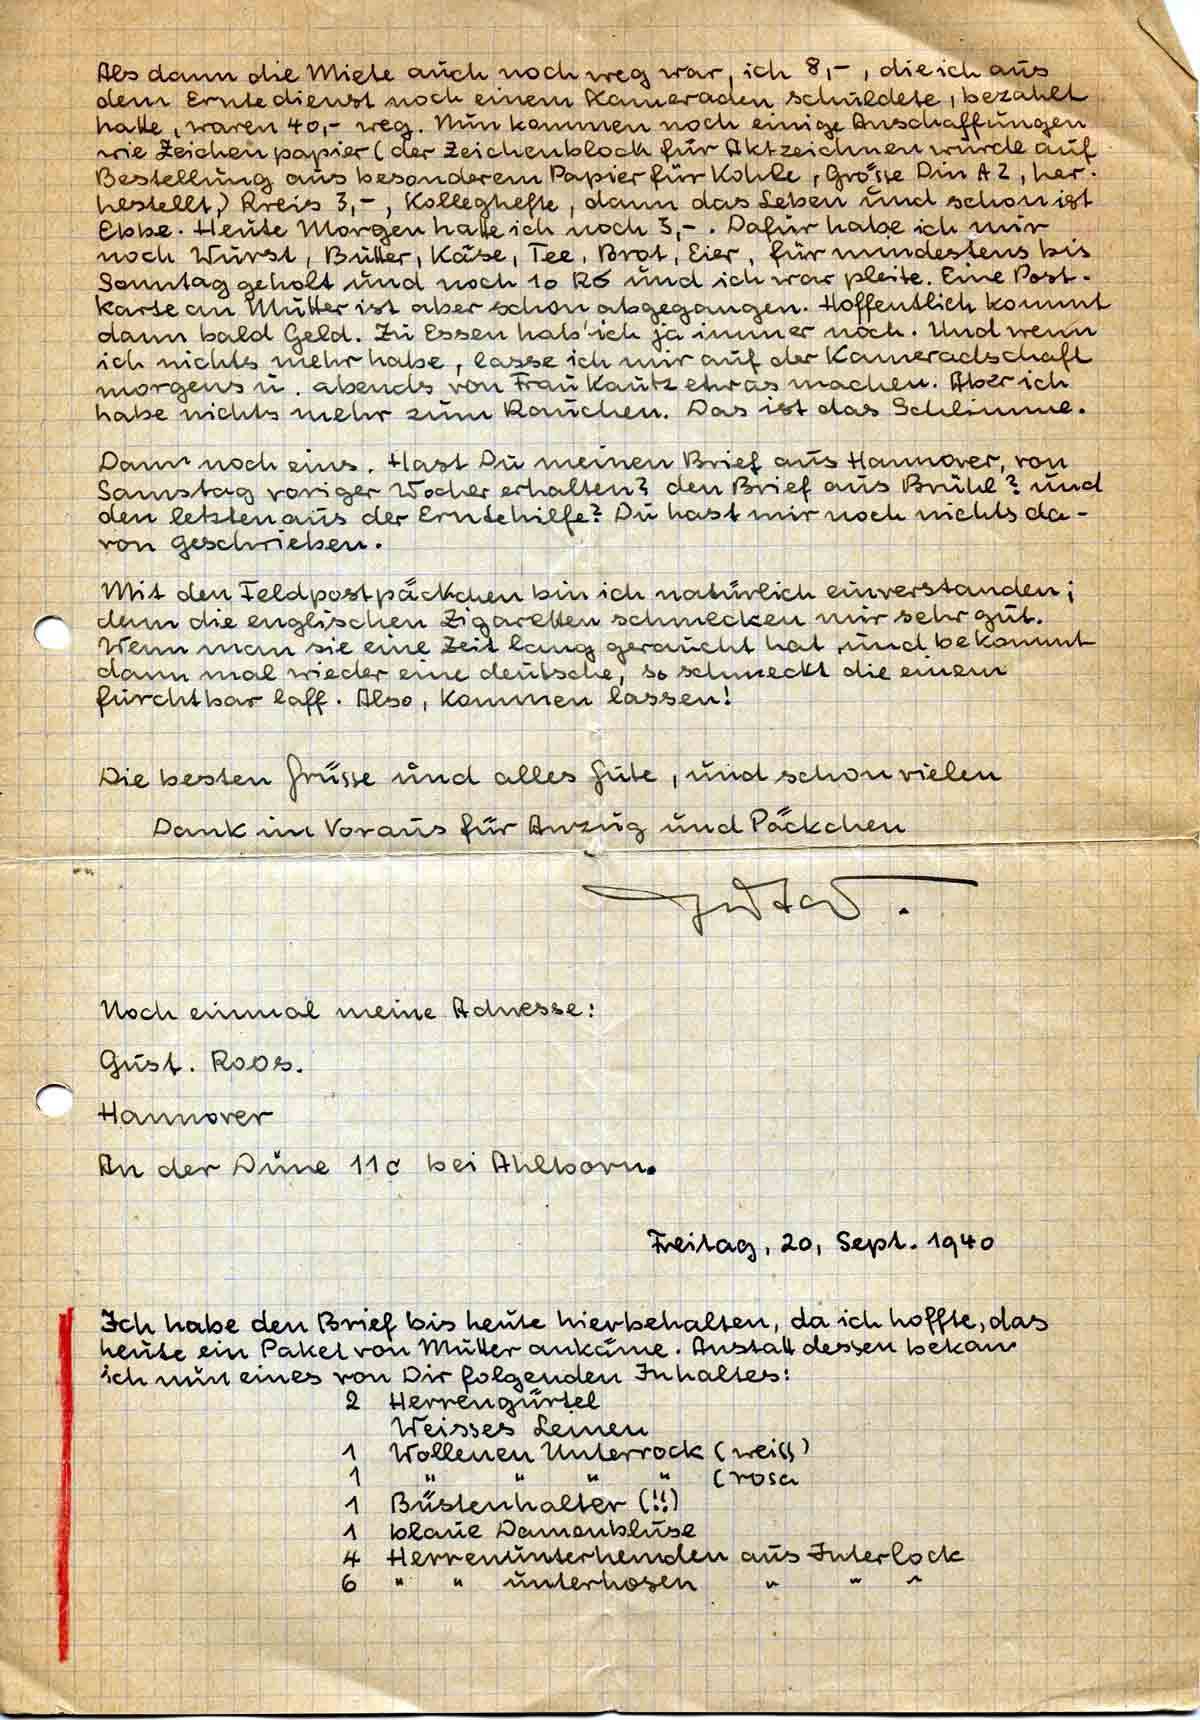 Als dann die Miete auch noch weg war, ich 8,-, die ich aus
dem Erntedienst noch einem Kameraden schuldete, bezahlt
hatte, waren 40,- weg. Nun kommen noch einige Anschaffungen
wie Zeichenpapier (der Zeichenblock für Aktzeichnen wurde auf
Bestellung aus besonderem Papier für Kohle, Grösse Din A2, her-
hestellt,) Kreis 3,-, Kolleghefte, dann das Leben und schon ist
Ebbe. Heute Morgen hatte ich noch 3,-. Dafür habe ich mir
noch Wurst, Butter, Käse, Tee, Brot, Eier, für mindestens bis
Sonntag geholt und noch 10 R6 und ich war pleite. Eine Post-
karte an Mutter ist aber schon abgegangen. Hoffentlich kommt
dann bald Geld. Zu Essen hab' ich ja immer noch. Und wenn
ich nichts mehr habe, lasse ich mir auf der Kameradschaft
morgens u. abends von Frau Kautz etwas machen. Aber ich
habe nichts mehr zum Rauchen. Das ist das Schlimme.
Dann noch eins. Hast Du meinen Brief aus Hannover, von
Samstag voriger Woche erhalten? den Brief aus Brühl? und
den letzten aus der Erntehilfe? Du hast mir noch nichts da-
von geschrieben.
Mit den Feldpostpäckchen bin ich natürlich einverstanden;
denn die englischen Zigaretten schmecken mir sehr gut.
Wenn man sie eine Zeit lang geraucht hat und bekommt
dann mal wieder eine deutsche, so schmeckt die einem
furchtbar laff. Also, kommen lassen!
Die besten Grüsse und alles Gute, und schon vielen
Dank im Voraus für Anzug und Päckchen
Gustav.
Noch einmal meine Adresse:
Gust. Roos.
Hannover
An der Düne 11c bei Ahlborn.
Freitag, 20, Sept. 1940
Ich habe den Brief bis heute hierbehalten, da ich hoffte, das
heute ein Paket von Mutter ankäme. Anstatt dessen bekam
ich nun eines von Dir folgenden Inhaltes:
2 Herrengürtel
Weisses Leinen
1 Wollenen Unterrock (weiss)
1 " " " " (rosa
1 Büstenhalter (!!)
1 blaue Damenbluse
4 Herrenunterhemden aus Interlock
6 " " unterhosen " " "